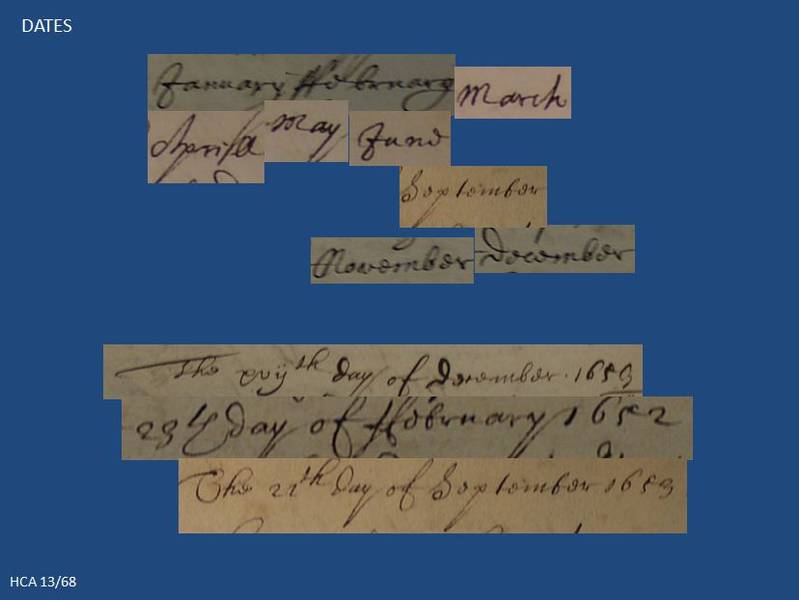 DATES
January ffebruary March
Aprill May June
September
November December
The xvijth day of December 1653
23th day of ffebruary 1652
The 21th day of September 1653
HCA 13/68